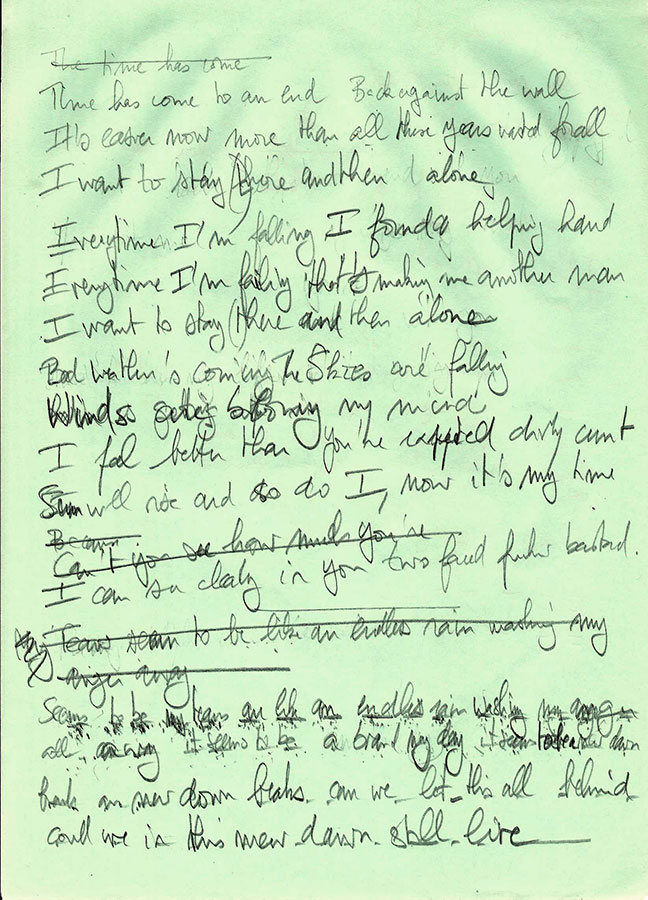 The time has come
Time has come to an end Back against the wall
It's easier now more than all these years wasted for all
I want to stay there and then alone
Everytime I'm falling I found a helping hand
Everytime I'm failing that's making me another man
I want to stay there and then alone
Bad wether's coming The Skies are falling
my mind
I feel better than you're dirty cunt
Sun will rise and so do I, now it's my time
Because
Can't you see how much you're
I can see clealy in you two faced fucker bastard.
Tears seem to be like an endless rain washing my
anger away
Seems to be my tears are like an endless rain washing my anger
all away it seems to be a brand my day it seems to be a new dawn
break an new down breaks can we let this all behind
could we in this new dawn still live